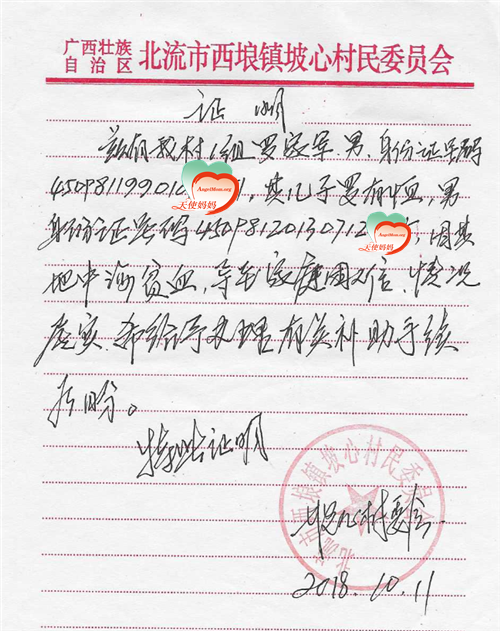 广西壮族
自治区 北流市西埌镇坡心村民委员会
证明
兹有我村1组罗家军 男、身份证号码
450981199010 AngelMom.org 天使妈妈 1, 其儿子罗有恒, 男
身份证号码45098120130712 AngelMom.org 天使妈妈 因其
地中海贫血, 导至家庭困难, 情况
属实, 希给予办理有关补助手续
为盼。
特此证明
北流市西埌镇坡心村民委员会
坡心村委会
2018.10.11